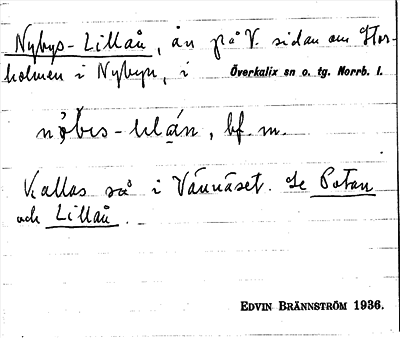 Nybys-Lillån, ån på V. sidan om Stor-
holmen i Nybyn, i Överkalix sn o. tg. Norrb. l.
bf. m.
Kallas så i Vännäset. Se Potan
och Lillån.
EDVIN BRÄNNSTRÖM 1936.